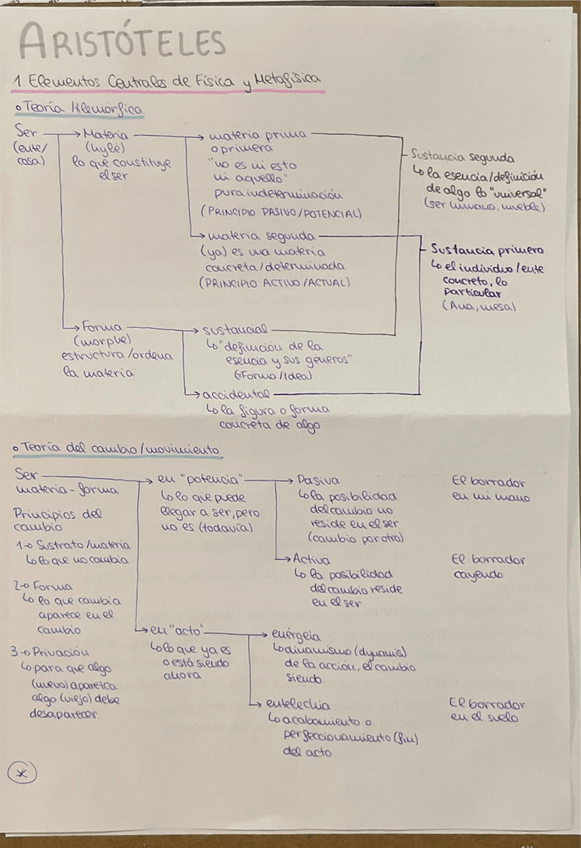 ARISTÓTELES
1. Elementos Centrales de Física y Metafísica
Teoría Hilemórfica
Ser
(ente/
cosa)
Materia
(hylé)
lo que constituye
el ser
materia prima
o primera
"no es ni esto
ni aquello"
pura indeterminación
(PRINCIPIO PASIVO/POTENCIAL)
materia segunda
(ya) es una materia
concreta/determinada
(PRINCIPIO ACTIVO/ACTUAL)
Sustancia segunda
la esencia/definición
de algo lo "universal"
(ser humano, mueble)
Sustancia primera
el individuo/ente
concreto, lo
particular
(Ana, mesa)
Forma
(morphé)
estructura/ordena
la materia
sustancial
"definición de la
esencia y sus géneros"
(=Forma/Idea)
accidental
la figura o forma
concreta de algo
Teoría del cambio/movimiento
Ser
materia-forma
Principios del
cambio
1-o Sustrato/materia
lo que no cambia
2-o Forma
lo que cambia
aparece en el
cambio
3-o Privación
para que algo
(nuevo) aparezca
algo (viejo) debe
desaparecer
en "potencia"
lo que puede
llegar a ser, pero
no es (todavía)
Pasiva
la posibilidad
del cambio no
reside en el ser
(cambio por otro)
El borrador
en mi mano
Activa
la posibilidad
del cambio reside
en el ser
El borrador
cayendo
en "acto"
lo que ya es
o está siendo
ahora
enérgeia
dinamismo (dynamis)
de la acción, el cambio
siendo
entelechia
acabamiento o
perfeccionamiento (fin)
del acto
El borrador
en el suelo
*